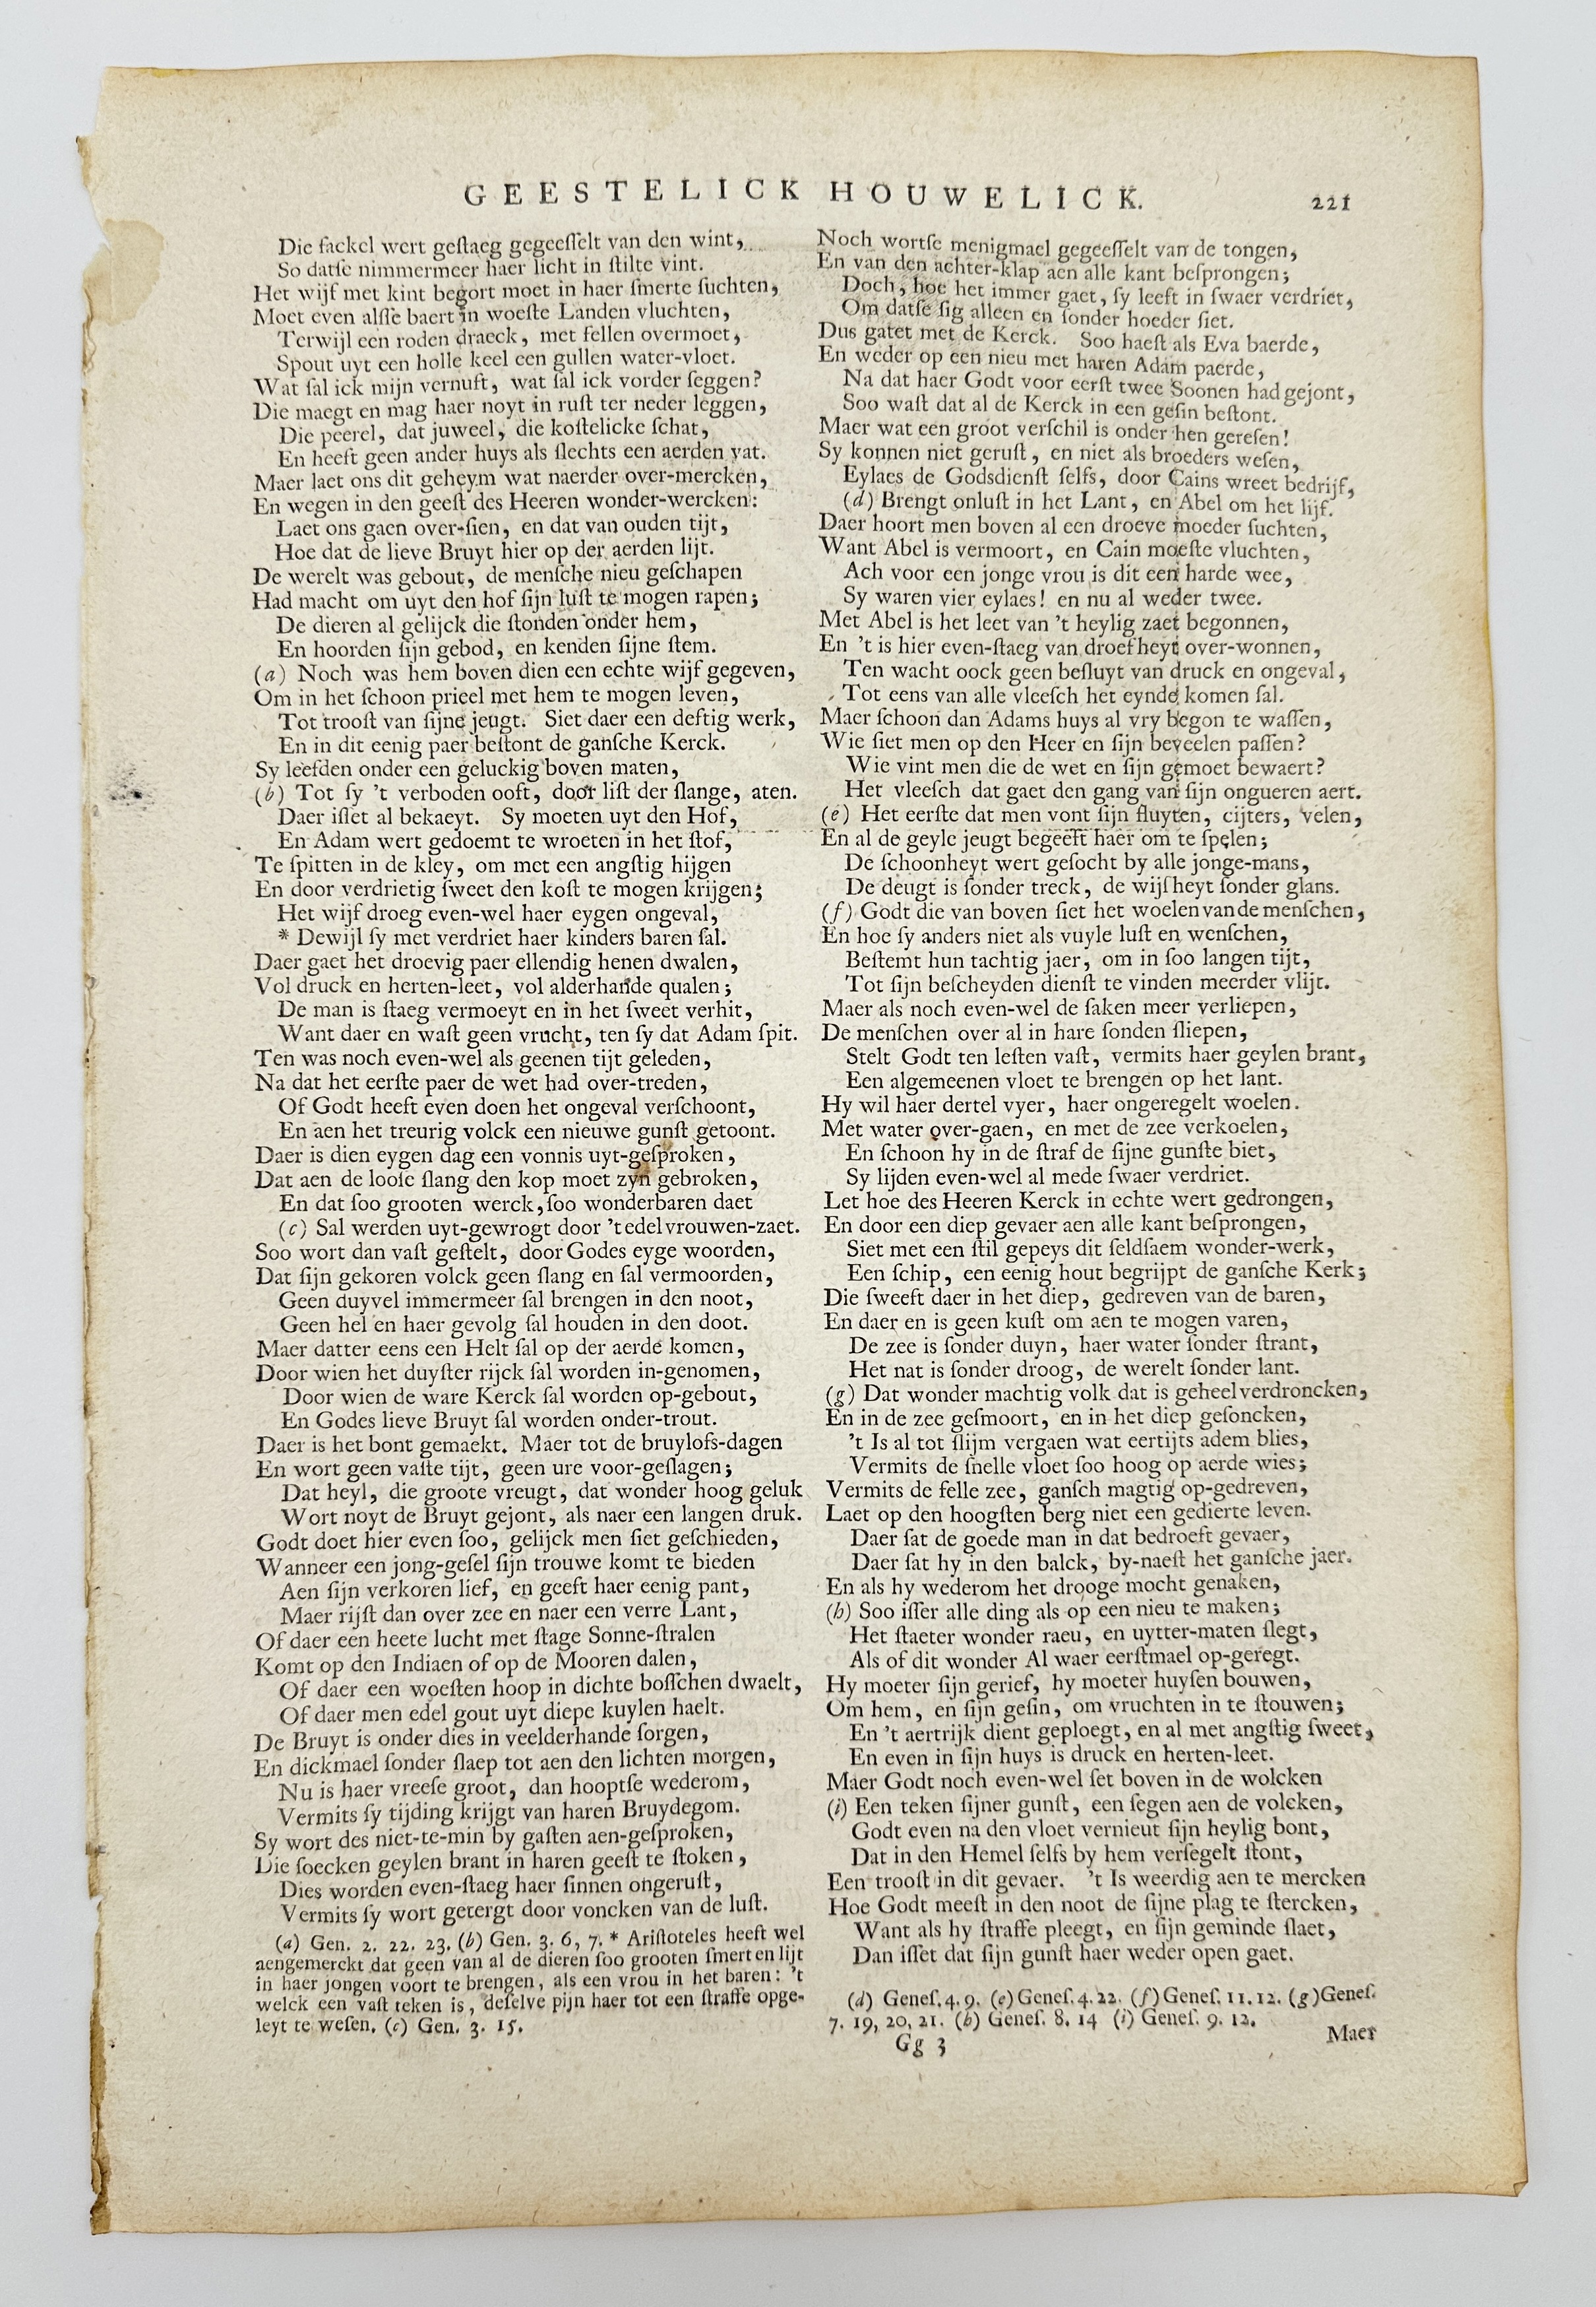 GEESTELICK HOUWELICK. 221
Die fackel wert geſtaeg gegeeſſelt van den wint,
So datſe nimmermeer haer licht in ſtilte vint.
Het wijf met kint begort moet in haer ſmerte ſuchten,
Moet even alſſe baert in woeſte Landen vluchten,
Terwijl een roden draeck, met fellen overmoet,
Spout uyt een holle keel een gullen water-vloet.
Wat ſal ick mijn vernuft, wat ſal ick vorder ſeggen?
Die maegt en mag haer noyt in ruſt ter neder leggen,
Die peerel, dat juweel, die koſtelicke ſchat,
En heeft geen ander huys als ſlechts een aerden vat.
Maer laet ons dit geheym wat naerder over-mercken,
En wegen in den geeſt des Heeren wonder-wercken:
Laet ons gaen over-ſien, en dat van ouden tijt,
Hoe dat de lieve Bruyt hier op der aerden lijt.
De werelt was gebout, de menſche nieu geſchapen
Had macht om uyt den hof ſijn luſt te mogen rapen;
De dieren al gelijck die ſtonden onder hem,
En hoorden ſijn gebod, en kenden ſijne ſtem.
(a) Noch was hem boven dien een echte wijf gegeven,
Om in het ſchoon prieel met hem te mogen leven,
Tot trooſt van ſijne jeugt. Siet daer een deftig werk,
En in dit eenig paer beſtont de ganſche Kerck.
Sy leefden onder een geluckig boven maten,
(b) Tot ſy 't verboden ooft, door liſt der ſlange, aten.
Daer iſſet al bekaeyt. Sy moeten uyt den Hof,
En Adam wert gedoemt te wroeten in het ſtof,
Te ſpitten in de kley, om met een angſtig hijgen
En door verdrietig ſweet den koſt te mogen krijgen;
Het wijf droeg even-wel haer eygen ongeval,
* Dewijl ſy met verdriet haer kinders baren ſal.
Daer gaet het droevig paer ellendig henen dwalen,
Vol druck en herten-leet, vol alderhande qualen;
De man is ſtaeg vermoeyt en in het ſweet verhit,
Want daer en waſt geen vrucht, ten ſy dat Adam ſpit.
Ten was noch even-wel als geenen tijt geleden,
Na dat het eerſte paer de wet had over-treden,
Of Godt heeft even doen het ongeval verſchoont,
En aen het treurig volck een nieuwe gunſt getoont.
Daer is dien eygen dag een vonnis uyt-geſproken,
Dat aen de looſe ſlang den kop moet zyn gebroken,
En dat ſoo grooten werck, ſoo wonderbaren daet
(c) Sal werden uyt-gewrogt door 't edel vrouwen-zaet.
Soo wort dan vaſt geſtelt, door Godes eyge woorden,
Dat ſijn gekoren volck geen ſlang en ſal vermoorden,
Geen duyvel immermeer ſal brengen in den noot,
Geen hel en haer gevolg ſal houden in den doot.
Maer datter eens een Helt ſal op der aerde komen,
Door wien het duyſter rijck ſal worden in-genomen,
Door wien de ware Kerck ſal worden op-gebout,
En Godes lieve Bruyt ſal worden onder-trout.
Daer is het bont gemaekt. Maer tot de bruylofs-dagen
En wort geen vaſte tijt, geen ure voor-geſlagen;
Dat heyl, die groote vreugt, dat wonder hoog geluk
Wort noyt de Bruyt gejont, als naer een langen druk.
Godt doet hier even ſoo, gelijck men ſiet geſchieden,
Wanneer een jong-geſel ſijn trouwe komt te bieden
Aen ſijn verkoren lief, en geeft haer eenig pant,
Maer rijſt dan over zee en naer een verre Lant,
Of daer een heete lucht met ſtage Sonne-ſtralen
Komt op den Indiaen of op de Mooren dalen,
Of daer een woeſten hoop in dichte boſſchen dwaelt,
Of daer men edel gout uyt diepe kuylen haelt.
De Bruyt is onder dies in veelderhande ſorgen,
En dickmael ſonder ſlaep tot aen den lichten morgen,
Nu is haer vreeſe groot, dan hooptſe wederom,
Vermits ſy tijding krijgt van haren Bruydegom.
Sy wort des niet-te-min by gaſten aen-geſproken,
Die ſoecken geylen brant in haren geeſt te ſtoken,
Dies worden even-ſtaeg haer ſinnen ongeruſt,
Vermits ſy wort getergt door voncken van de luſt.
(a) Gen. 2. 22. 23. (b) Gen. 3. 6, 7. * Ariſtoteles heeft wel
aengemerckt dat geen van al de dieren ſoo grooten ſmert en lijt
in haer jongen voort te brengen, als een vrou in het baren: 't
welck een vaſt teken is, deſelve pijn haer tot een ſtraffe opge-
leyt te weſen. (c) Gen. 3. 15.
Noch wortſe menigmael gegeeſſelt van de tongen,
En van den achter-klap aen alle kant beſprongen;
Doch, hoe het immer gaet, ſy leeft in ſwaer verdriet,
Om datſe ſig alleen en ſonder hoeder ſiet.
Dus gatet met de Kerck. Soo haeſt als Eva baerde,
En weder op een nieu met haren Adam paerde,
Na dat haer Godt voor eerſt twee Soonen had gejont,
Soo waſt dat al de Kerck in een geſin beſtont.
Maer wat een groot verſchil is onder hen gereſen!
Sy konnen niet geruſt, en niet als broeders weſen,
Eylaes de Godsdienſt ſelfs, door Cains wreet bedrijf,
(d) Brengt onluſt in het Lant, en Abel om het lijf.
Daer hoort men boven al een droeve moeder ſuchten,
Want Abel is vermoort, en Cain moeſte vluchten,
Ach voor een jonge vrou is dit een harde wee,
Sy waren vier eylaes! en nu al weder twee.
Met Abel is het leet van 't heylig zaet begonnen,
En 't is hier even-ſtaeg van droefheyt over-wonnen,
Ten wacht oock geen beſluyt van druck en ongeval,
Tot eens van alle vleeſch het eynde komen ſal.
Maer ſchoon dan Adams huys al vry begon te waſſen,
Wie ſiet men op den Heer en ſijn beveelen paſſen?
Wie vint men die de wet en ſijn gemoet bewaert?
Het vleeſch dat gaet den gang van ſijn ongueren aert.
(e) Het eerſte dat men vont ſijn fluyten, cijters, velen,
En al de geyle jeugt begeeft haer om te ſpelen;
De ſchoonheyt wert geſocht by alle jonge-mans,
De deugt is ſonder treck, de wijſheyt ſonder glans.
(f) Godt die van boven ſiet het woelen van de menſchen,
En hoe ſy anders niet als vuyle luſt en wenſchen,
Beſtemt hun tachtig jaer, om in ſoo langen tijt,
Tot ſijn beſcheyden dienſt te vinden meerder vlijt.
Maer als noch even-wel de ſaken meer verliepen,
De menſchen over al in hare ſonden ſliepen,
Stelt Godt ten leſten vaſt, vermits haer geylen brant,
Een algemeenen vloet te brengen op het lant.
Hy wil haer dertel vyer, haer ongeregelt woelen.
Met water over-gaen, en met de zee verkoelen,
En ſchoon hy in de ſtraf de ſijne gunſte biet,
Sy lijden even-wel al mede ſwaer verdriet.
Let hoe des Heeren Kerck in echte wert gedrongen,
En door een diep gevaer aen alle kant beſprongen,
Siet met een ſtil gepeys dit ſeldſaem wonder-werk,
Een ſchip, een eenig hout begrijpt de ganſche Kerk;
Die ſweeft daer in het diep, gedreven van de baren,
En daer en is geen kuſt om aen te mogen varen,
De zee is ſonder duyn, haer water ſonder ſtrant,
Het nat is ſonder droog, de werelt ſonder lant.
(g) Dat wonder machtig volk dat is geheel verdroncken,
En in de zee geſmoort, en in het diep geſoncken,
't Is al tot ſlijm vergaen wat eertijts adem blies,
Vermits de ſnelle vloet ſoo hoog op aerde wies;
Vermits de felle zee, ganſch magtig op-gedreven,
Laet op den hoogſten berg niet een gedierte leven.
Daer ſat de goede man in dat bedroeft gevaer,
Daer ſat hy in den balck, by-naeſt het ganſche jaer.
En als hy wederom het drooge mocht genaken,
(h) Soo iſſer alle ding als op een nieu te maken;
Het ſtaeter wonder raeu, en uytter-maten ſlegt,
Als of dit wonder Al waer eerſtmael op-geregt.
Hy moeter ſijn gerief, hy moeter huyſen bouwen,
Om hem, en ſijn geſin, om vruchten in te ſtouwen;
En 't aertrijk dient geploegt, en al met angſtig ſweet,
En even in ſijn huys is druck en herten-leet.
Maer Godt noch even-wel ſet boven in de wolcken
(i) Een teken ſijner gunſt, een ſegen aen de volcken,
Godt even na den vloet vernieut ſijn heylig bont,
Dat in den Hemel ſelfs by hem verſegelt ſtont,
Een trooſt in dit gevaer. 't Is weerdig aen te mercken
Hoe Godt meeſt in den noot de ſijne plag te ſtercken,
Want als hy ſtraffe pleegt, en ſijn geminde ſlaet,
Dan iſſet dat ſijn gunſt haer weder open gaet.
(d) Geneſ. 4. 9. (e) Geneſ. 4. 22. (f) Geneſ. 11. 12. (g) Geneſ.
7. 19, 20, 21. (h) Geneſ. 8. 14 (i) Geneſ. 9. 12.
Gg 3 Maer